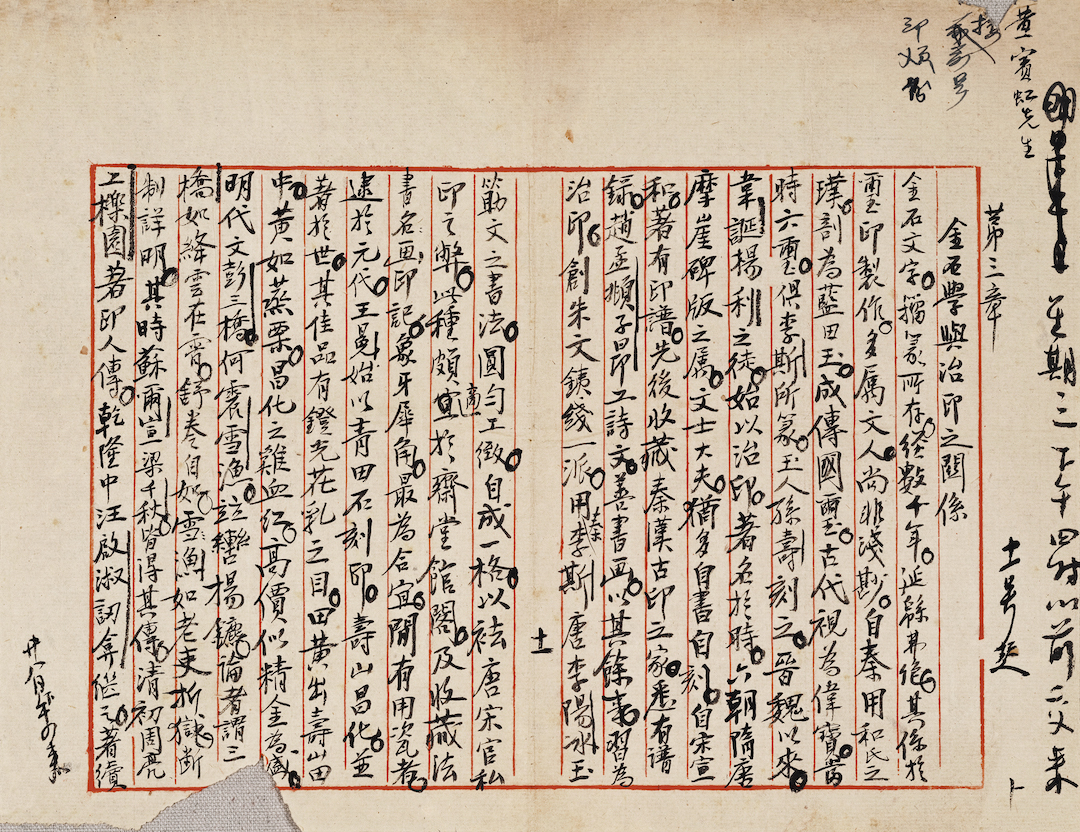 黄賓虹先生
接
印奴啟
明 星期三下午四時以前交來
十一号起
第三章
金石學與治印之關係
金石文字。籀篆所存。經數千年。延緜弗絶。其係於
璽印製作。多屬文人。尚非淺尠。自秦用和氏之
璞。剖為藍田玉。成傳國璽。古代視為偉寶。當
時六璽。俱李斯所篆。玉人孫壽刻之。晋魏以來。
韋誕揚利之徒。始以治印。著名於時。六朝隋唐
摩崖碑版之属。文士大夫。猶多自書自刻。自宋宣
和。著有印譜。先後收藏秦漢古印之家。悉有譜
錄。趙孟頫子昂。工詩文。善書畫。以其餘事。習為
治印。創朱文鉄綫一派。用秦李斯唐李陽冰玉
十一
筯文之書法。圓匀工緻。自成一格。以袪唐宋官私
印之弊。此種頗適宜於齋堂館閣。及收藏法
書名画印記。象牙犀角。最為合宜。間有用瓷者。
逮於元代。王冕始以青田石刻印。壽山昌化。並
著於世。其佳品有鐙光花乳之目。田黄出壽山田
中。黄如蒸栗。昌化之雞血红。高價似精金為盛。
明代文彭三橋。何震雪漁。竝轡揚鑣。論者謂三
橋如绛雲在霄。舒卷自如。雪漁如老吏折獄。斷
制詳明。其時蘇爾宣梁千秋。皆得其傳。清初周亮
工櫟園。著印人傳。乾隆中汪啟淑訒盦。继之著續